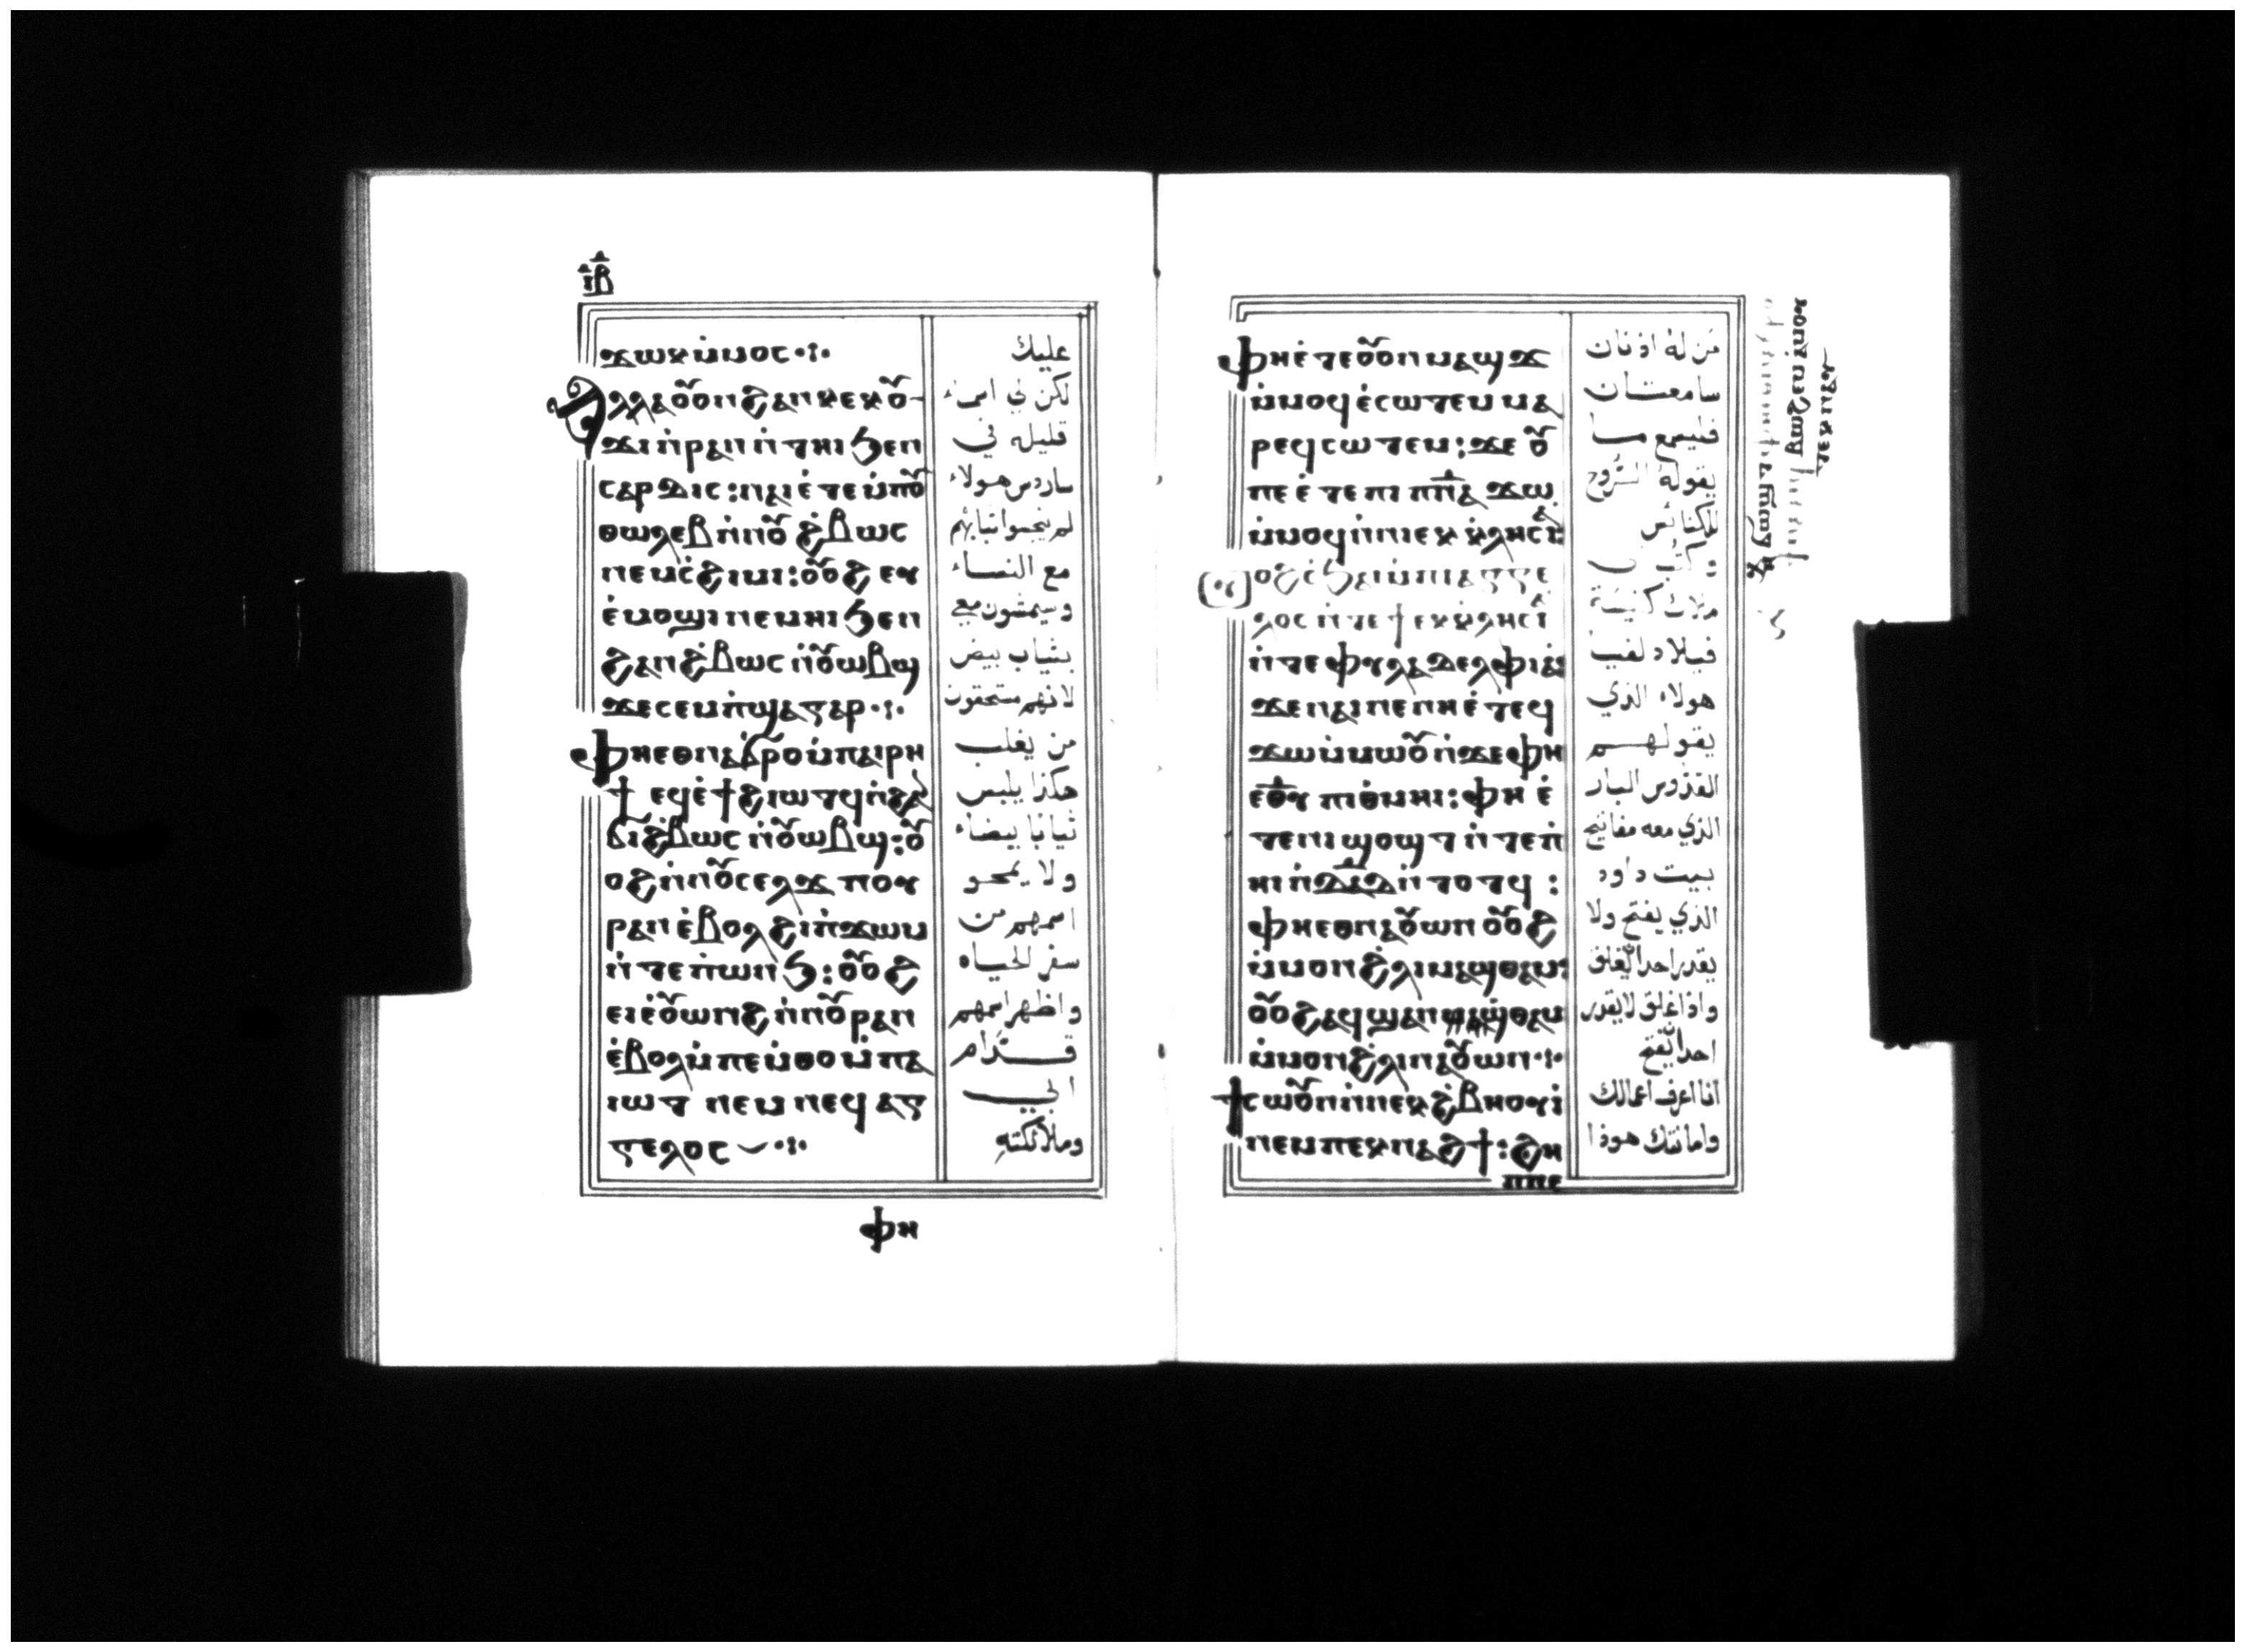 ⲓⲃ
ϫⲱⲕ ⲙ̀ⲙⲟⲥ
ⲁⲗⲗⲁ ⲟⲩⲟⲛ ϩⲁⲛⲕⲉⲕⲟⲩ
ϫⲓ ⲛ̀ⲣⲁⲛ ⲛ̀ⲧⲏⲓ ϧⲉⲛ
ⲥⲁⲣⲇⲓⲥ: ⲛⲁⲓ ⲉ̀ⲧⲉ ⲙ̀ⲡⲟⲩ
ⲑⲱⲗⲉⲃ ⲛ̀ⲛⲟⲩ ϩ̀ⲃⲱⲥ
ⲛⲉⲙ ⲥ̀ϩⲓⲙⲓ: ⲟⲩⲟϩ ⲉⲩ
ⲉ̀ⲙⲟϣⲓ ⲛⲉⲙⲏⲓ ϧⲉⲛ
ϩⲁⲛϩ̀ⲃⲱⲥ ⲛ̀ⲟⲩⲱⲃϣ
ϫⲉ ⲥⲉⲙ̀ⲡϣⲁ ⲅⲁⲣ
ⲫⲏ ⲉⲑⲛⲁϭⲣⲟ ⲙ̀ⲡⲁⲓⲣⲏ
ϯ ⲉϥⲉ̀ϯ ϩⲓⲱⲧϥ ⲛ̀ϩⲁⲛ
ϩ̀ⲃⲱⲥ ⲛ̀ⲟⲩⲱⲃϣ: ⲟⲩ
ⲟϩ ⲛ̀ⲛⲟⲩⲥⲉⲗϫ ⲡⲟⲩ
ⲣⲁⲛ ⲉ̀ⲃⲟⲗ ϩⲓ ⲡ̀ϫⲱⲙ
ⲛ̀ⲧⲉ ⲡ̀ⲱⲛϧ: ⲟⲩⲟϩ
ⲉⲓⲉ̀ⲟⲩⲱⲛϩ ⲙ̀ⲡⲟⲩⲣⲁⲛ
ⲉ̀ⲃⲟⲗ ⲙ̀ⲡⲉⲙ̀ⲑⲟ ⲙ̀ⲡⲁ
ⲓⲱⲧ ⲛⲉⲙ ⲛⲉϥⲁⲅ
ⲅⲉⲗⲟⲥ
ⲫⲏ
عليك
لكن لي اسماء
قليله في
ساردس هولاء
لم ينجسوا ثيابهم
مع النساء
وسيمشون معي
بثياب بيض
لانهم مستحقون
من يغلب
هكذا يلبس
ثيابا بيضاء
ولا يمحو
اسمهم من
سفر الحياه
واظهر اسمهم
قدام
ابي
وملائكته
ⲫⲏ ⲉ̀ⲧⲉ ⲟⲩⲟⲛ ⲙⲁϣϫ
ⲙ̀ⲙⲟϥ ⲉ̀ⲥⲱⲧⲉⲙ ⲙⲁ
ⲣⲉϥⲥⲱⲧⲉⲙ: ϫⲉ ⲟⲩ
ⲡⲉ ⲉ̀ⲧⲉ ⲡⲓⲡⲛⲁ ϫⲱ
ⲙ̀ⲙⲟϥ ⲛ̀ⲛⲓⲉⲕⲕ̀ⲗⲏⲥⲓⲁ:
ⲟϩ ⲥ̀ϧⲁⲓ ⲙ̀ⲡⲓⲁⲅⲅⲉ
ⲗⲟⲥ ⲛ̀ⲧⲉ ϯⲉⲕⲕ̀ⲗⲏⲥⲓⲁ
ⲛ̀ⲧⲉ ⲫⲩⲗⲁⲇⲉⲗⲫⲓⲁ
ϫⲉ ⲛⲁⲓ ⲛⲉ ⲛⲏ ⲉ̀ⲧⲉϥ
ϫⲱ ⲙ̀ⲙⲱⲟⲩ ⲛ̀ϫⲉ ⲫⲏ
ⲉⲑⲩ ⲡⲓⲑ̀ⲙⲏⲓ: ⲫⲏ ⲉ̀
ⲧⲉ ⲡⲓϣⲟϣⲧ ⲛ̀ⲧⲉ ⲡ̀
ⲏⲓ ⲛ̀ⲇⲁⲇ ⲛ̀ⲧⲟⲧϥ:
ⲫⲏ ⲉⲑⲛⲁⲟⲩⲱⲛ ⲟⲩⲟϩ
ⲙ̀ⲙⲟⲛ ϩ̀ⲗⲓ ⲛⲁϣⲑⲁⲙ:
ⲟⲩⲟϩ ⲁϥϣⲁⲛϣ̀ⲑⲁⲙ
ⲙ̀ⲙⲟⲛ ϩ̀ⲗⲓ ⲛⲁⲟⲩⲱⲛ
ϯⲥⲱⲟⲩⲛ ⲛ̀ⲛⲉⲕϩ̀ⲃⲏⲟⲩⲓ̀
ⲛⲉⲙ ⲡⲉⲕⲛⲁϩϯ: ϩⲏ
ⲡⲡⲉ
من له اذنان
سامعتان
فليسمع ما
يقوله الروح
للكنائس
وكتب
ملاك كنيسة
فيلادلفيا
هولاء الذي
يقولهم
القدوس البار
الذي معه مفاتيح
بيت داود
الذي يفتح ولا
يقدر احد ان يغلق
واذا غلق لا يقدر
احد ان يفتح
انا اعرف اعمالك
وامانتك هوذا